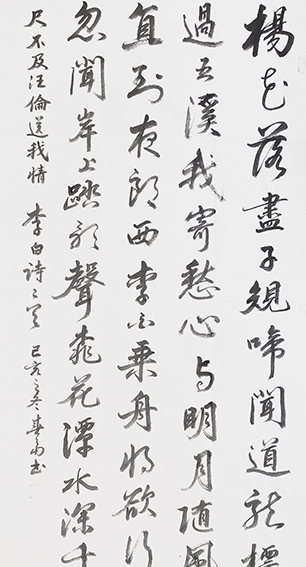 楊花落盡子規啼聞道龍標
過五溪我寄愁心与明月隨風
直到夜郎西李白乘舟將欲行
忽聞岸上踏歌聲桃花潭水深千
尺不及汪倫送我情 李白詩二首 己亥之冬